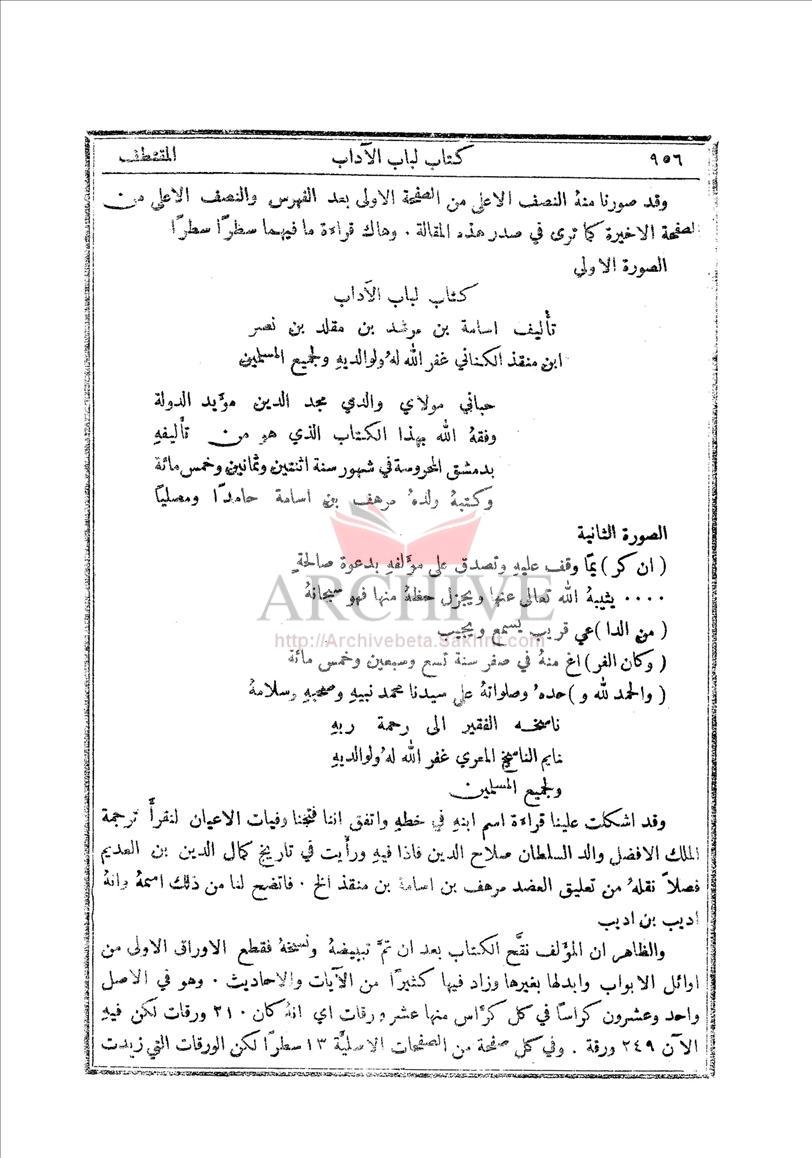 ٩٥٦ كتاب لباب الآداب المقتطف
وقد صورنا منهُ النصف الاعلى من الصفحة الاولى بعد الفهرس والنصف الاعلى من
الصفحة الاخيرة كما ترى في صدر هذه المقالة . وهاك قراءة ما فيهما سطرًا سطرًا
الصورة الاولي
كتاب لباب الآداب
تأليف اسامة بن مرشد بن مقلد بن نصر
ابن منقذ الكناني غفر الله لهُ ولوالديهِ ولجميع المسلمين
حباني مولاي والدي مجد الدين مؤيد الدولة
وفقهُ الله بهذا الكتاب الذي هو من تأليفهِ
بدمشق المحروسة في شهور سنة اثنتين وثمانين وخمس مائة
وكتبهُ ولدهُ مرهف بن اسامة حامدًا ومصليًا
الصورة الثانية
( ان كر ) يمًا وقف عليهِ وتصدق على مؤلفهِ بدعوة صالحةٍ
٠٠٠٠ يثيبهُ الله تعالى عنها ويجزل حظهُ منها فهو سبحانهُ
( من الدا ) عي قريب يسمع ويجيب
( وكان الفر ) اغ منهُ في صفر سنة تسع وسبعين وخمس مائة
( والحمد لله و ) حدهُ وصلواتهُ على سيدنا محمد نبيهِ وصحبهِ وسلامهُ
ناسخه الفقير الى رحمة ربهِ
غنايم الناسخ المعري غفر الله لهُ ولوالديهِ
ولجميع المسلمين
وقد اشكلت علينا قراءة اسم ابنهِ في خطهِ واتفق اننا فتحنا وفيات الاعيان لنقرأ ترجمة
الملك الافضل والد السلطان صلاح الدين فاذا فيهِ ورأيت في تاريخ كمال الدين بن العديم
فصلاً نقلهُ من تعليق العضد مرهف بن اسامة بن منقذ الخ . فاتضح لنا من ذلك اسمهُ وانهُ
اديب بن اديب
والظاهر ان المؤلف نقَّح الكتاب بعد ان تمَّ تبييضهُ ونسخهُ فقطع الاوراق الاولى من
اوائل الابواب وابدلها بغيرها وزاد فيها كثيرًا من الآيات والاحاديث . وهو في الاصل
واحد وعشرون كراسًا في كل كرَّاس منها عشر ورقات اي انهُ كان ٢١٠ ورقات لكن فيهِ
الآن ٢٤٩ ورقة . وفي كل صفحة من الصفحات الاصليَّة ١٣ سطرًا لكن الورقات التي زيدت
ARCHIVE
http://Archivebeta.Sakhrit.com